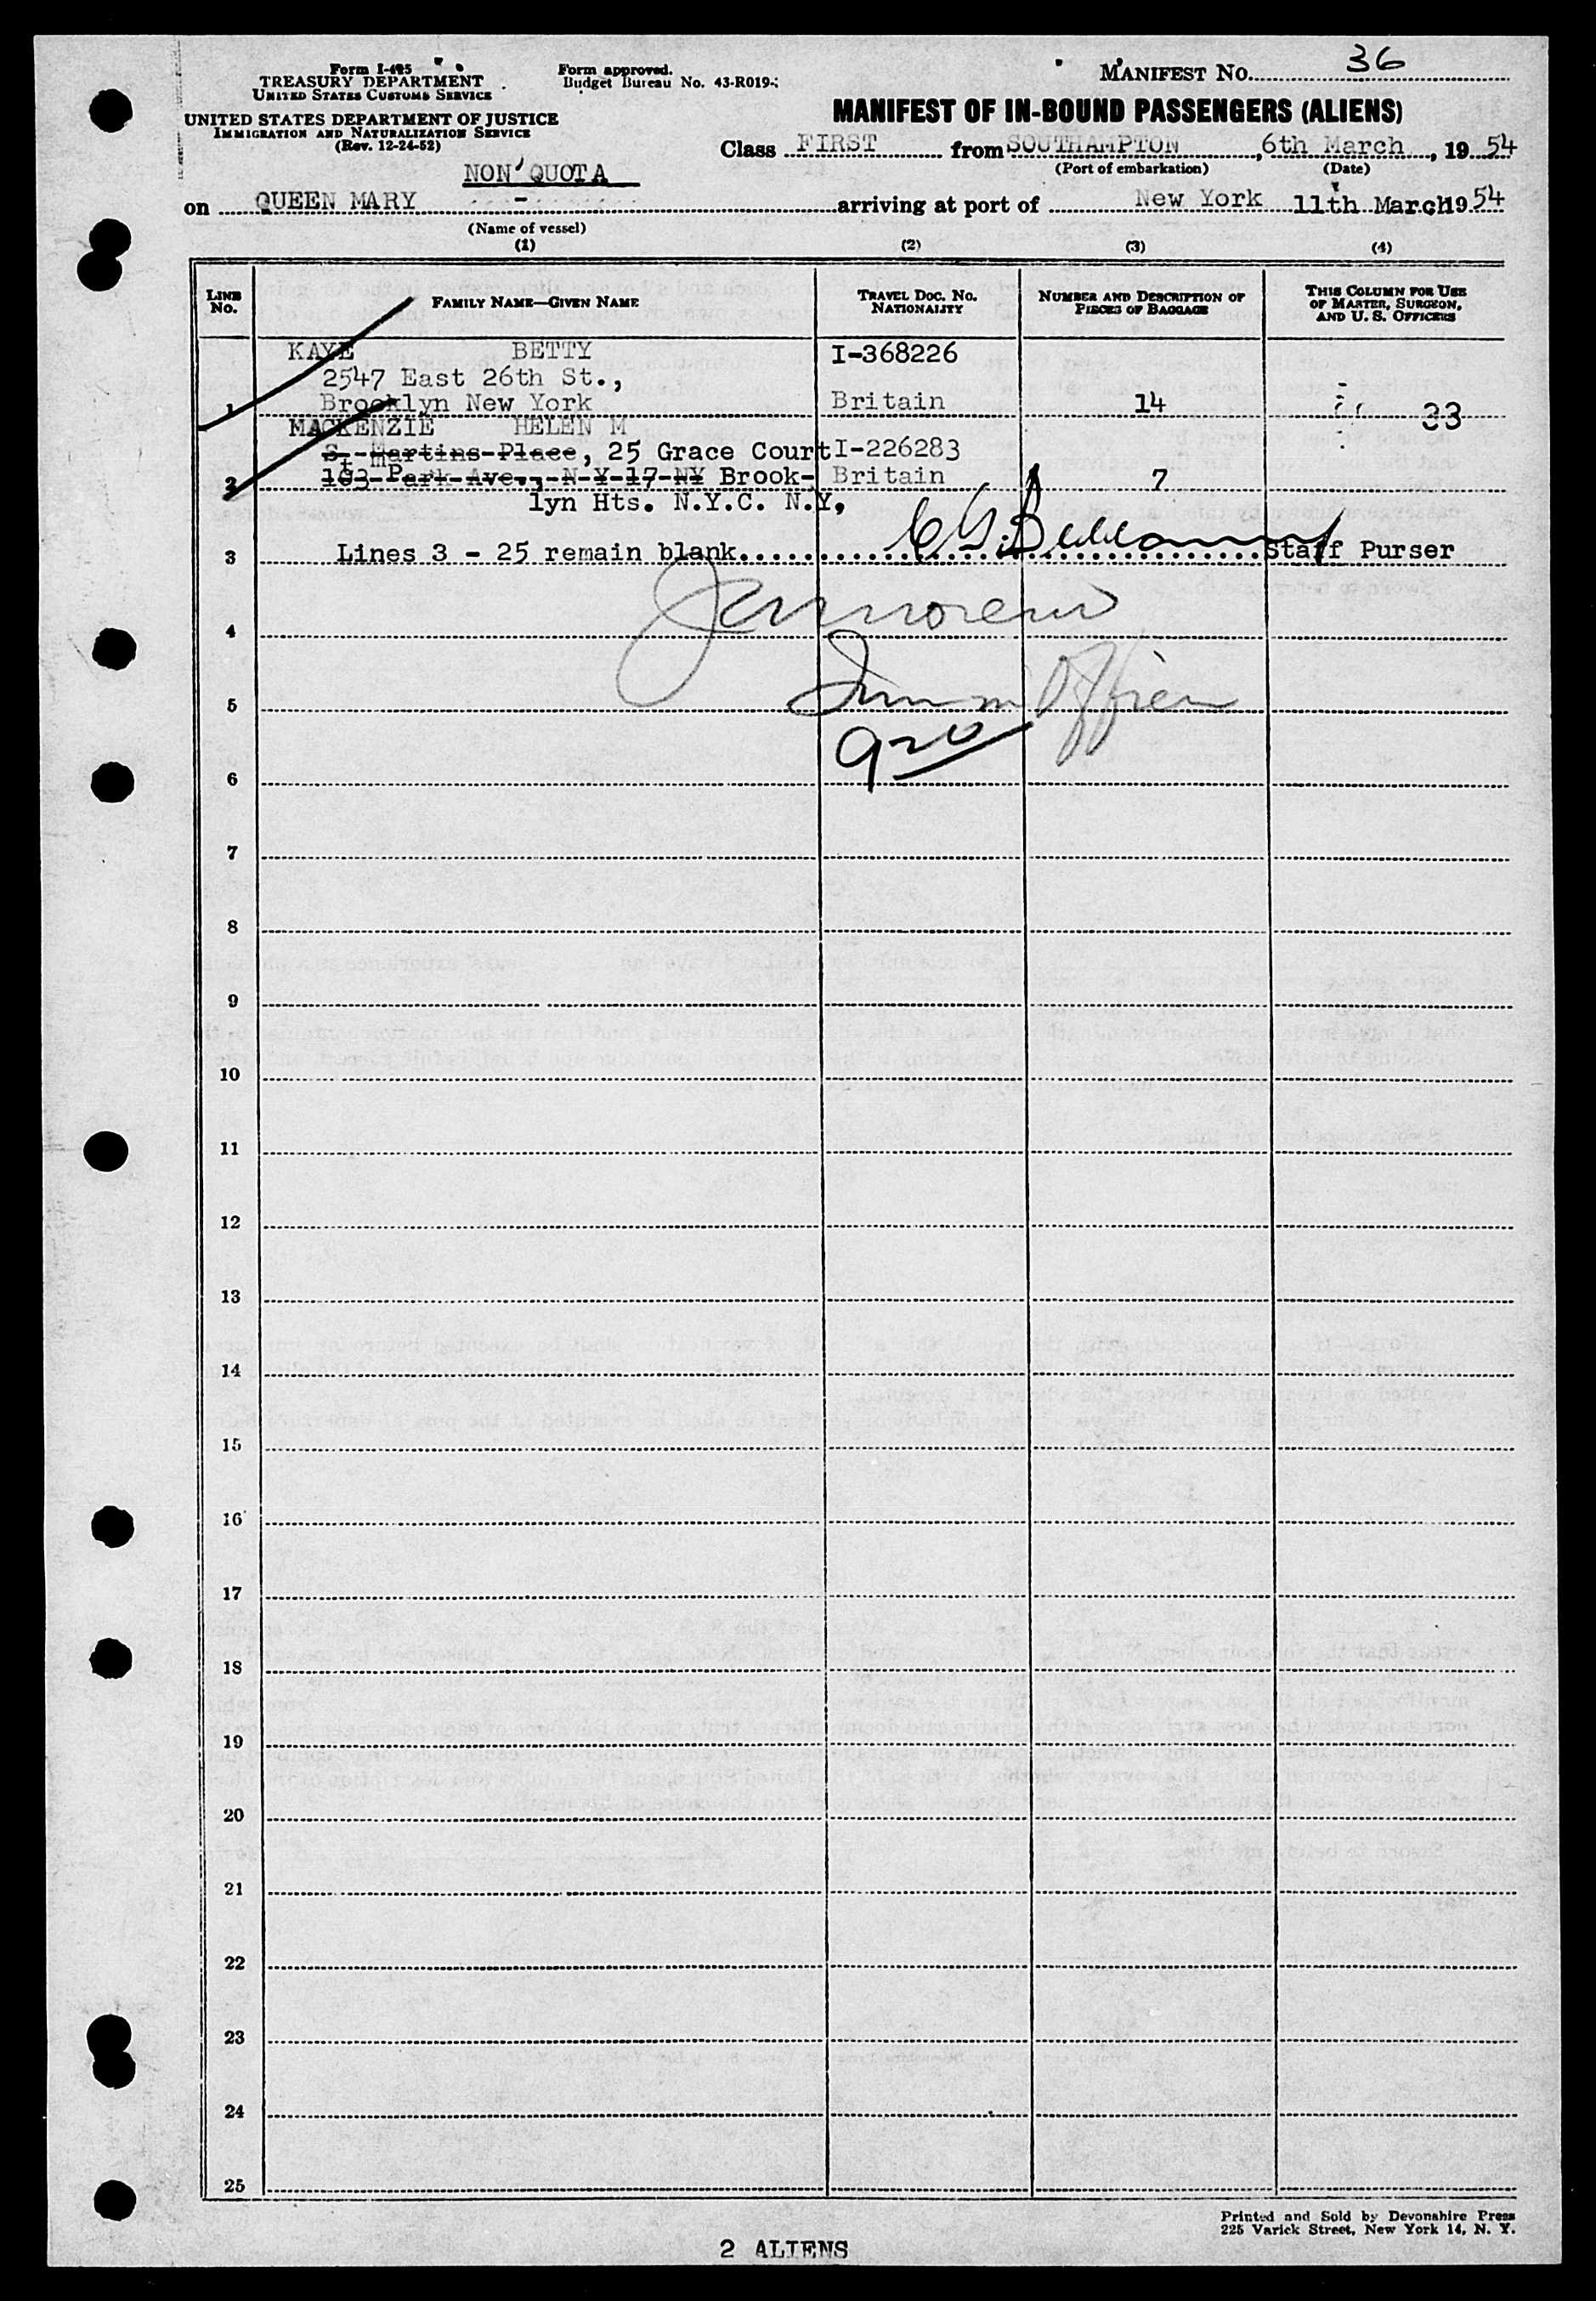 Form I-415
TREASURY DEPARTMENT
UNITED STATES CUSTOMS SERVICE
UNITED STATES DEPARTMENT OF JUSTICE
IMMIGRATION AND NATURALIZATION SERVICE
(Rev. 12-24-52)
Form approved.
Budget Bureau No. 43-R019-
MANIFEST NO. 36
MANIFEST OF IN-BOUND PASSENGERS (ALIENS)
Class FIRST from SOUTHAMPTON, 6th March, 1954
(Port of embarkation) (Date)
NON QUOTA
on QUEEN MARY - arriving at port of New York 11th March 1954
(Name of vessel)
(1) (2) (3) (4)
LINE NO. FAMILY NAME—GIVEN NAME TRAVEL DOC. NO. NATIONALITY NUMBER AND DESCRIPTION OF PIECES OF BAGGAGE THIS COLUMN FOR USE OF MASTER, SURGEON, AND U. S. OFFICERS
KAYE BETTY I-368226
2547 East 26th St.,
1 Brooklyn New York Britain 14 33
MACKENZIE HELEN M
St Martins Place, 25 Grace Court I-226283
2 103 Park Ave., N Y 17 NY Brook- Britain 7
lyn Hts. N.Y.C. N.Y,
3 Lines 3 - 25 remain blank Staff Purser
4
Imm Officer
5
920
6
7
8
9
10
11
12
13
14
15
16
17
18
19
20
21
22
23
24
25
Printed and Sold by Devonshire Press
225 Varick Street, New York 14, N. Y.
2 ALIENS